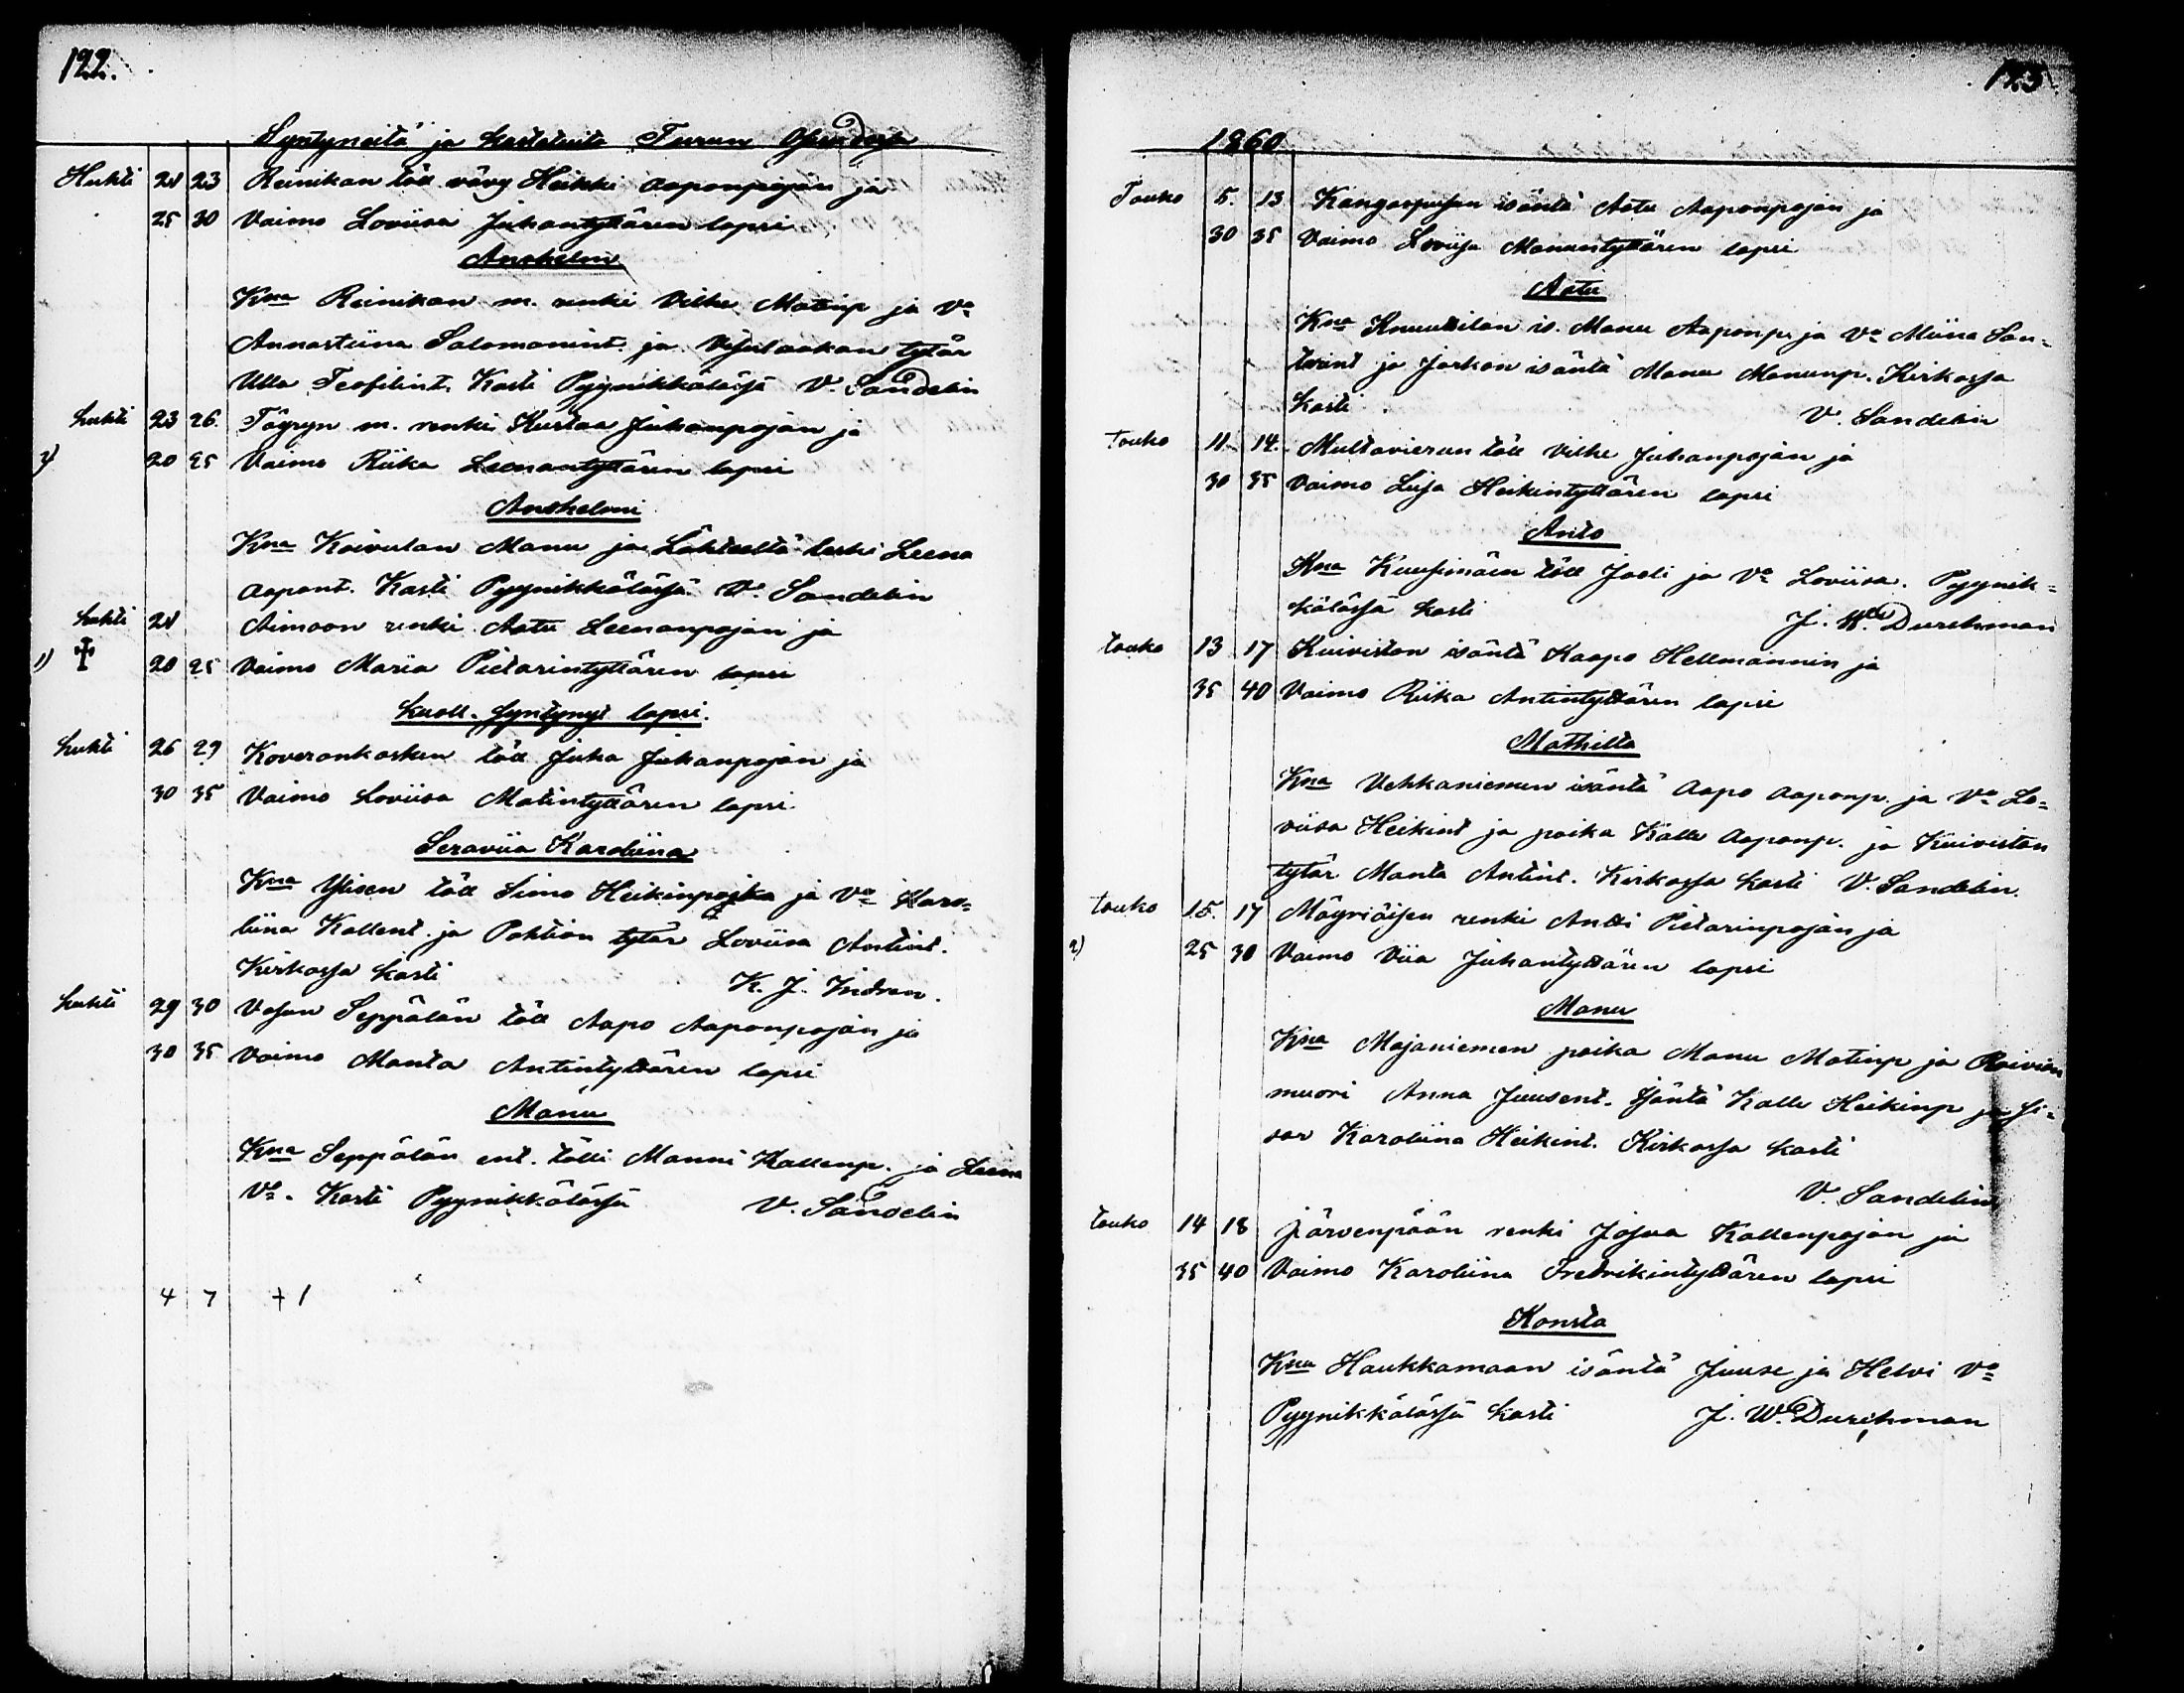 122.
Syntyneitä ja kastetuita Turun
Huhti 21 23 Reinikan töll vävy Heikki Aaponpojan ja
25 30 Vaimo Loviisa Juhantyttären lapsi
Anshelm
Kna Reinikan m. renki Vilhe Matinp ja Va
Annastiina Salomonint. ja tytär
Ulla Teofilint. Kasti Pyynikkälässä V. Sandelin
huhti 23 26. Töyryn m. renki Kustaa Juhanpojan ja
2) 20 25 Vaimo Riika Leenantyttären lapsi
Anshelmi
Kna Koivulan Manu ja Lähteeltä leski Leena
Aapont. Kasti Pyynikkälässä V. Sandelin
huhti 21 Aimoon renki Aatu Leenanpojan ja
1) † 20 25 Vaimo Maria Pietarintyttären lapsi
kuoll. syntynyt lapsi.
huhti 26 29 Koveronkosken töll Juha Juhanpojan ja
30 35 Vaimo Loviisa Matintyttären lapsi
Seraviia Karoliina
Kna Ylisen töll Simo Heikinpoika ja Va Karo=
liina Kallent. ja Pohtion tytär Loviisa Antint.
Kirkossa kasti K. J.
huhti 29 30 Vasun Seppälän töll Aapo Aaponpojan ja
30 35 Vaimo Manta Antintyttären lapsi
Manu
Kna Seppälän ent. tölli Manni Kallenp. ja Leena
Va. Kasti Pyynikkälässä V. Sandelin
4 7 +1
123
1860
Touko 5. 13 Kangaspuson isäntä Aatu Aaponpojan ja
30 35 Vaimo Loviisa Manuntyttären lapsi
Aatu
Kna Knuutilan is. Manu Aaponp. ja Va Miina San=
terint ja Jaskan isäntä Manu Manunp. Kirkossa
kasti V. Sandelin
touko 11. 14. Multavierun töll Vilhe Juhanpojan ja
30 35 Vaimo Liisa Heikintyttären lapsi
Anto
Kna Kuusimäen töll Jooli ja Va Loviisa. Pyynik=
kälässä kasti J. W. Durchman
touko 13 17 Kuiviston isäntä Kaapo Hellmannin ja
35 40 Vaimo Riika Antintyttären lapsi
Mathilta
Kna Vehkaniemen isäntä Aapo Aaponp. ja Va Lo=
viisa Heikint ja poika Kalle Aaponp. ja Kuiviston
tytär Manta Antint. Kirkossa kasti V. Sandelin.
touko 15. 17 Mäyriäisen renki Antti Pietarinpojan ja
2) 25 30 Vaimo Viia Juhantyttären lapsi
Manu
Kna Majaniemen poika Manu Matinp ja Raivion
muori Anna Juusent. Isäntä Kalle Heikinp ja si=
sar Karoliina Heikint. Kirkossa kasti
V. Sandelin
touko 14 18 Järvenpään renki Josua Kallenpojan ja
35 40 Vaimo Karoliina Fredrikintyttären lapsi
Konsta
Kna Haukkamaan isäntä Juuse ja Helvi Va
Pyynikkälässä kasti J. W. Durchman